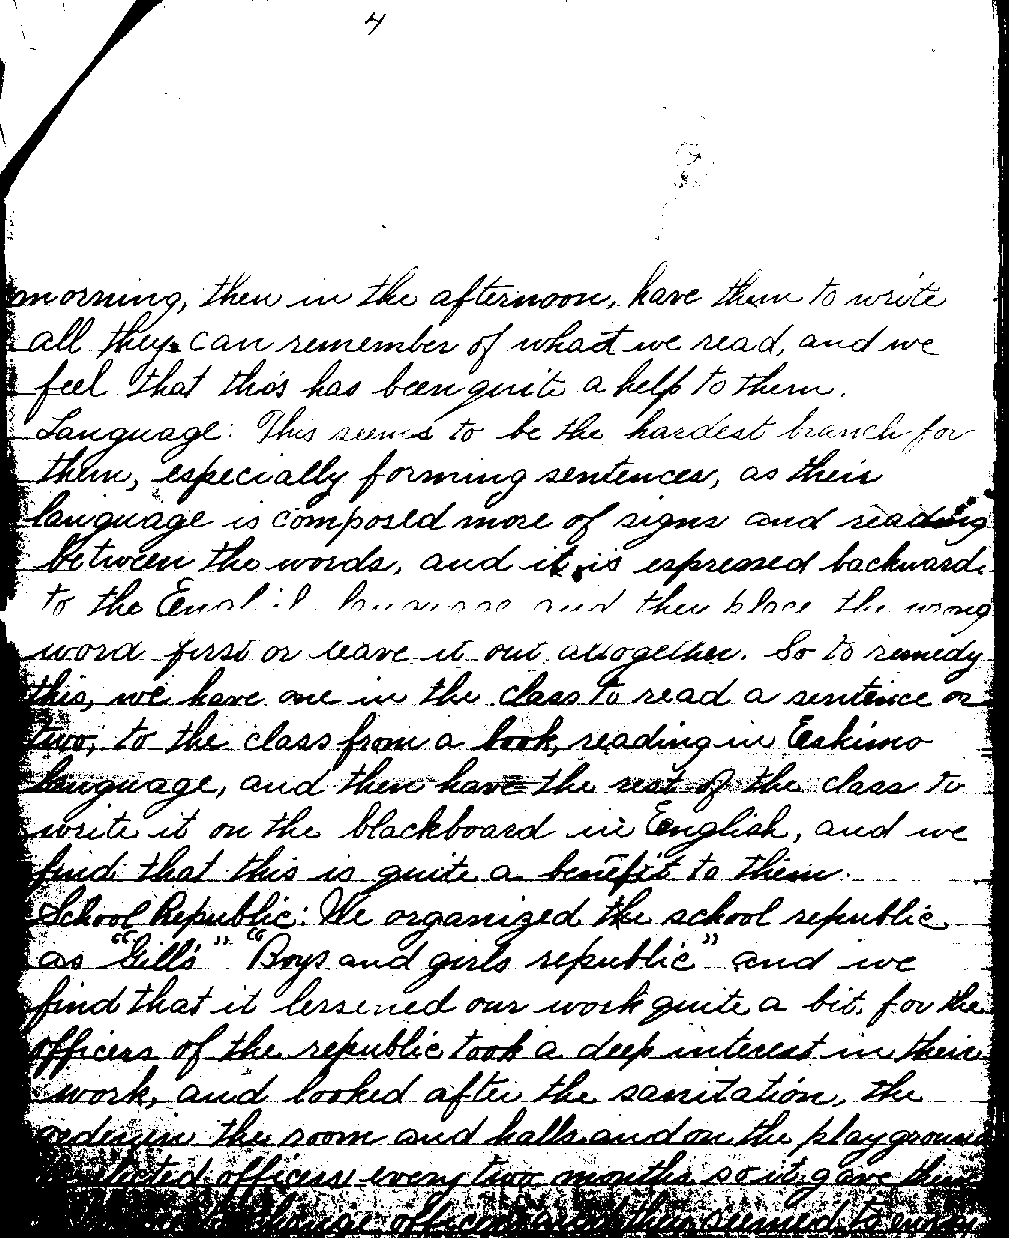 4
morning, then in the afternoon, have them to write
all they can remember of what we read, and we
feel that this has been quite a help to them.
Language: This seems to be the hardest branch for
them, especially forming sentences, as their
language is composed more of signs and reading
between the words, and it is expressed backward
to the English language and they place the wrong
word first or leave it out altogether. So to remedy
this, we have one in the class to read a sentence or
two, to the class from a book, reading in Eskimo
language, and then have the rest of the class to
write it on the blackboard in English, and we
find that this is quite a benefit to them.
School Republic: We organized the school republic
as "Gill's" "Boys and girls republic" and we
find that it lessened our work quite a bit, for the
officers of the republic took a deep interest in their
work, and looked after the sanitation, the
order in the room and halls and on the play ground
elected officers every two months so it gave them
change officers and they seemed to enjoy